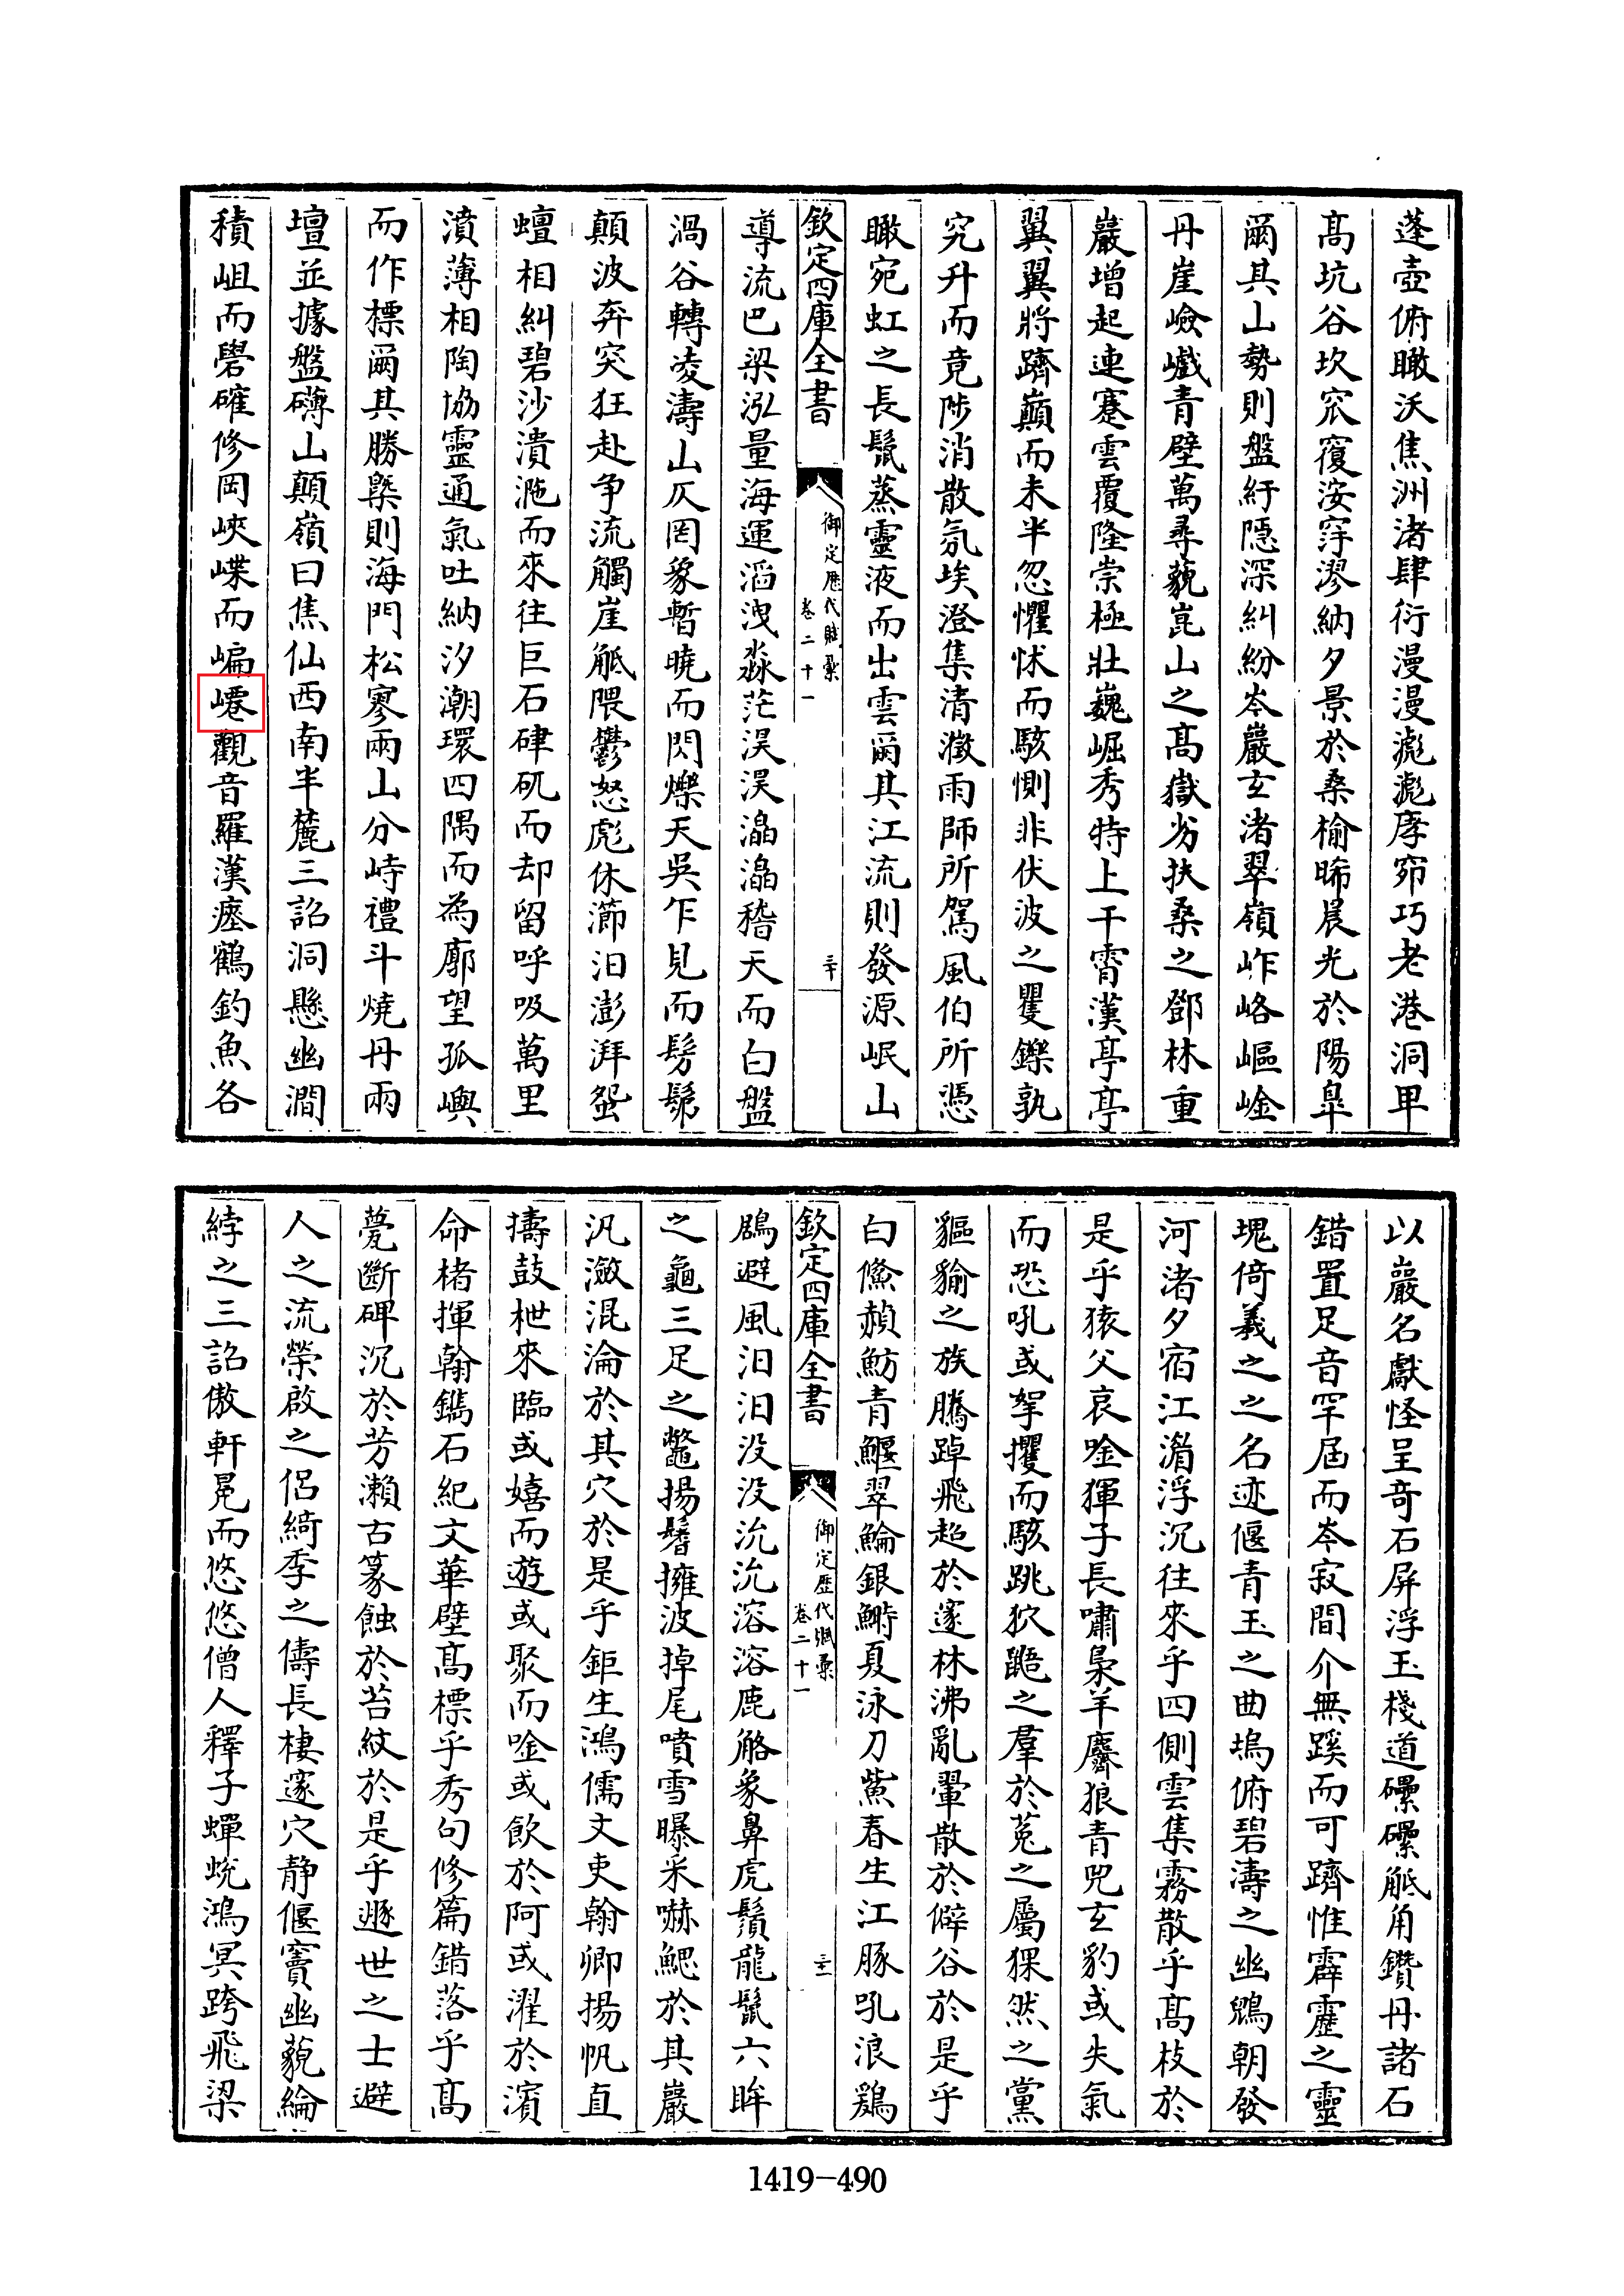 蓬壺俯瞰沃焦洲渚肆衍漫漫滮滮庨窌巧老港洞甲
髙坑谷坎窞寪㳷窏漻納夕景於桑榆晞晨光於陽臯
爾其山勢則盤紆隱深糾紛岑巖玄渚翠嶺岝峈嶇崯
丹崖嶮巇青壁萬尋藐崑山之髙嶽劣扶桑之鄧林重
巖增起連蹇雲覆隆崇極壯巍崛秀特上干霄漢亭亭
翼翼將躋巔而未半忽懼怵而駭惻非伏波之矍鑠孰
究升而竟陟消散氛埃澄集清澂雨師所駕風伯所憑
瞰宛虹之長鬛蒸靈液而出雲爾其江流則發源岷山
欽定四庫全書
御定歷代賦彙
卷二十一
三十
導流巴梁泓量海運滔洩淼茫淏淏潝潝稽天而白盤
渦谷轉凌濤山仄罔象暫曉而閃爍天吳乍見而髣髴
顛波奔突狂赴争流觸崖觝隈鬱怒彪休㵐汨澎湃蛩
螘相糾碧沙潰㳸而來往巨石硉矹而却留呼吸萬里
濆薄相陶協靈通氣吐納汐潮環四隅而為廓望孤嶼
而作標爾其勝槩則海門松寥兩山分峙禮斗燒丹兩
壇並據盤礴山顛嶺曰焦仙西南半麓三詔洞懸幽澗
積岨而礐確修岡峽㟸而崸㟴觀音羅漢瘞鶴釣魚各
以巖名獻怪呈竒石屏浮玉棧道礧礧觝角鑽丹諸石
錯置足音罕屆而岑寂間介無蹊而可躋惟霹靂之靈
塊倚義之之名迹偃青玉之曲塢俯碧濤之幽鵷朝發
河渚夕宿江湄浮沉往來乎四側雲集霧散乎髙枝於
是乎猿父哀唫猩子長嘯梟羊麡狼青兕玄豹或失氣
而恐吼或拏攫而駭跳狖䶉之羣於菟之屬猓然之黨
貙貐之族騰踔飛超於邃林沸亂翬散於僻谷於是乎
白鯈赬魴青鰋翠鯩銀鰤夏泳刀鮆春生江豚吼浪鷄
欽定四庫全書
御定歷代賦彙
卷二十一
三十一
鶋避風汨汨没没沇沇溶溶鹿觡象鼻虎鬚龍鬛六眸
之龜三足之鼈揚鬐擁波掉尾噴雪曝采嚇鰓於其巖
汎瀲混淪於其穴於是乎鉅生鴻儒文吏翰卿揚帆直
擣鼓枻來臨或嬉而遊或聚而唫或飲於阿或濯於濱
命楮揮翰鐫石紀文華壁髙標乎秀句修篇錯落乎髙
甍斷碑沉於芳瀨古篆蝕於苔紋於是乎遯世之士避
人之流榮啟之侶綺季之儔長棲邃穴静偃竇幽藐綸
綍之三詔傲軒冕而悠悠僧人釋子蟬蛻鴻冥跨飛梁
1419-490